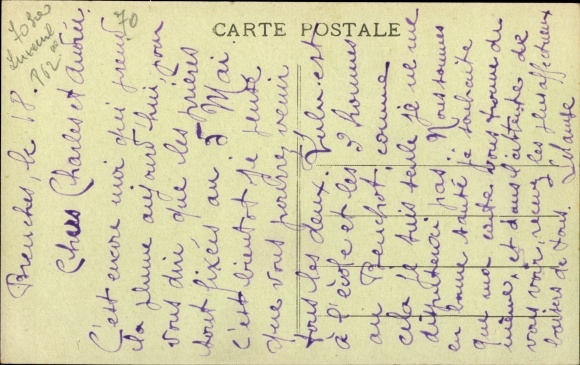 CARTE POSTALE
70
Breuches, le 18.
Chers Charles et Andrée.
C'est encore moi qui prend
la plume aujourd'hui pour
vous dire que les prières
sont fixées au 5 Mai.
c'est bientôt je pense
que vous pourrez venir
tous les deux. Lulu est
à l'école et les 2 hommes
au comme
cela je suis seule je ne me
disputerai pas. Nous sommes
en bonne santé je souhaite
que ma carte vous trouve de
même, et dans l'attente de
vous voir, recevez les plus affectueux
baisers de tous.